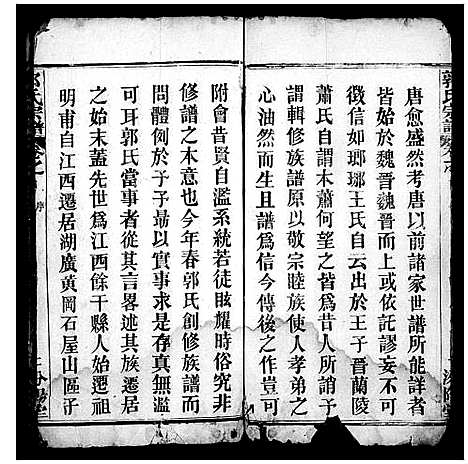 郭氏宗譜
唐愈盛然考唐以前諸家世譜所能詳者
皆始於魏晉魏晉而上或依託謬妄不可
徵信如瑯琊王氏自云出於王子晉蘭陵
蕭氏自謂本蕭何望之皆爲昔人所誚予
謂輯修族譜原以敬宗睦族使人孝弟之
心油然而生且譜爲信今傳後之作豈可
附會昔賢自濫系統若徒眩耀時俗究非
修譜之本意也今年春郭氏創修族譜而
問體例於予予勗以實事求是存眞無濫
可耳郭氏當事者從其言畧述其遷徙
之始末蓋先世爲江西餘干縣人始遷祖
明甫自江西遷居湖廣黃岡石屋山區子
郭氏宗譜